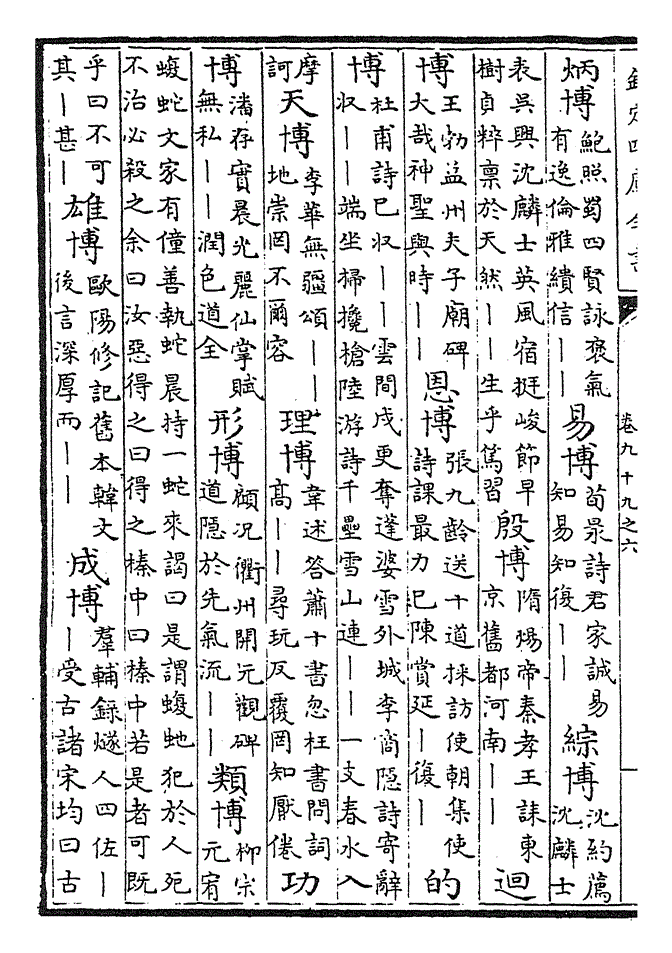 欽定四庫全書
卷九十九之六
炳博鮑照蜀四賢詠褒氣有逸倫雅繢信丨丨易博荀㬎詩君家誠易知易知復丨丨綜博沈約薦沈麟士
表吳興沈麟士英風宿挺峻節早樹貞粹禀於天然丨丨生乎篤習殷博隋煬帝秦孝王誄東京舊都河南丨丨迴
博王勃益州夫子廟碑大哉神聖與時丨丨恩博張九齡送十道採訪使朝集使詩課最力已陳賞延丨復丨的
博杜甫詩已収丨丨雲間戍更奪蓬婆雪外城李商隐詩寄辭収丨丨端坐掃攙槍陸游詩千壘雪山連丨丨一支春水入
摩訶天博李華無疆頌丨丨地崇罔不爾容理博韋述答蕭十書忽枉書問詞高丨丨尋玩反覆罔知厭倦功
博潘存實晨光麗仙掌賦無私丨丨潤色道全形博顧況衢州開元觀碑道隱於先氣流丨丨類博柳宗元宥
蝮蛇文家有僮善執蛇晨持一蛇來謁曰是謂蝮虵犯於人死不治必殺之余曰汝惡得之曰得之榛中曰榛中若是者可既
乎曰不可其丨甚丨雄博歐陽修記舊本韓文後言深厚而丨丨成博羣輔録燧人四佐丨丨受古諸宋均曰古